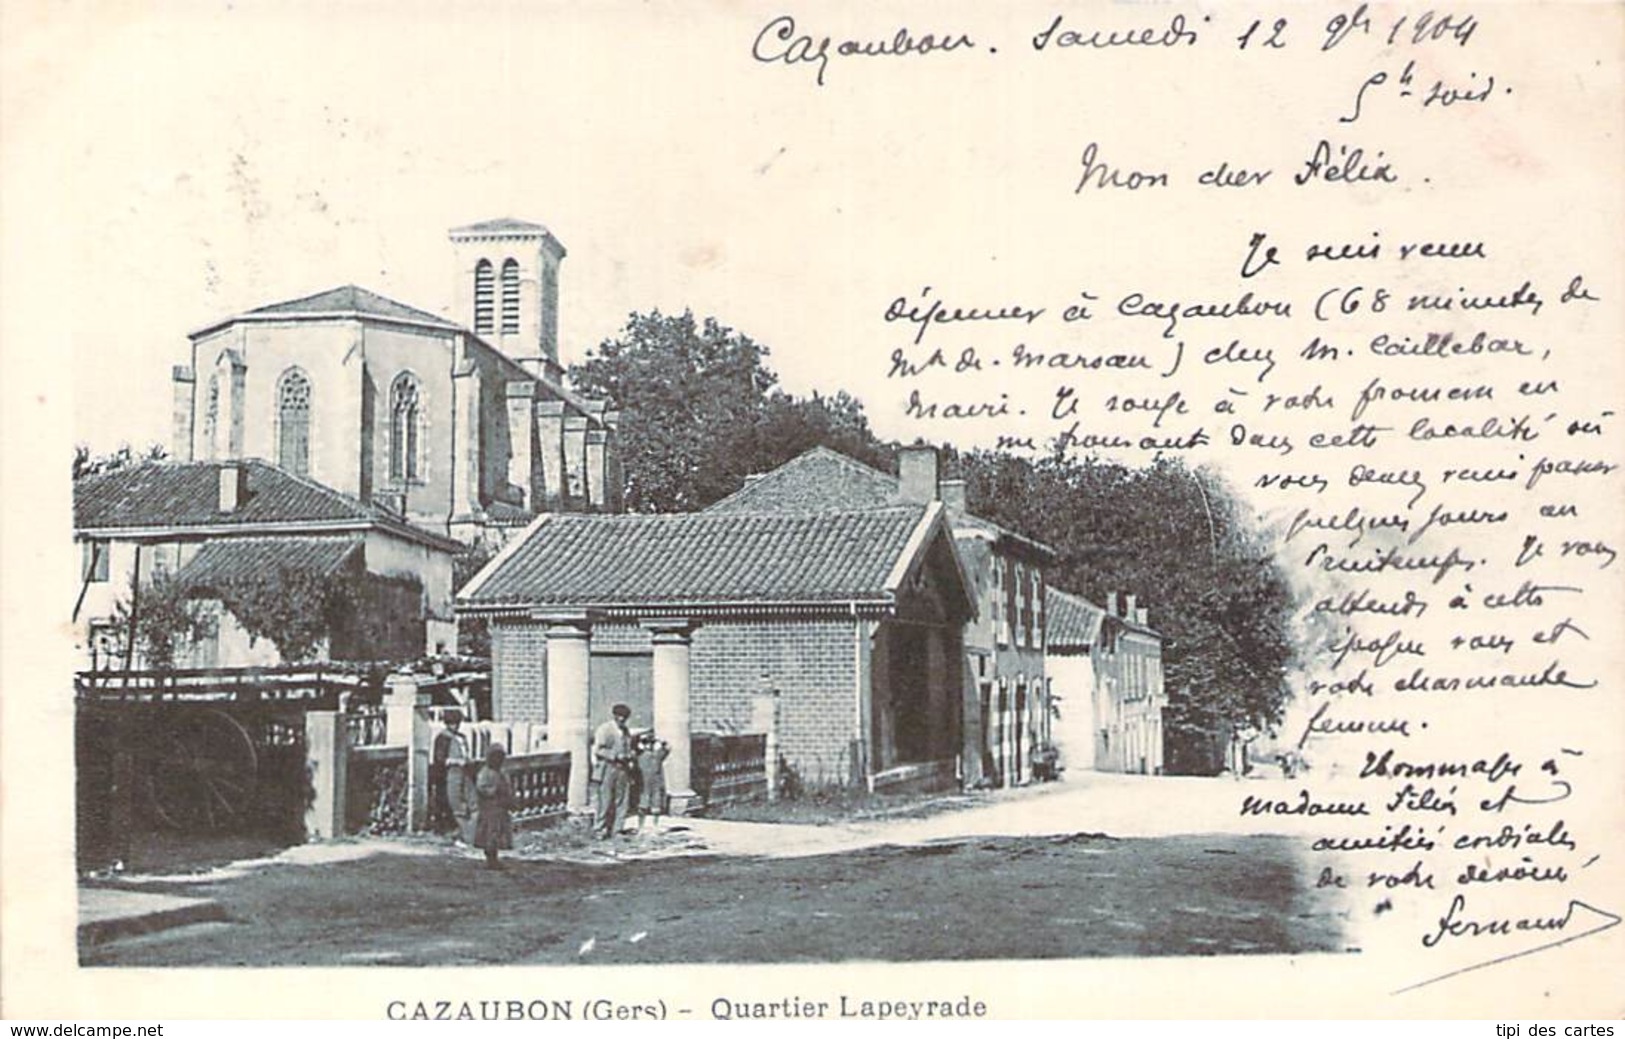 Cazaubon. Samedi 12 9bre 1904
5h soir.
Mon cher Félix.
Je suis venu
déjeuner à Cazaubon (68 minutes de
Mt de-Marsan) chez M. Caillebar,
Maire. Je songe à votre en
me trouvant dans cette localité où
vous devez venir passer
quelques jours au
Printemps. Je vous
attends à cette
époque vous et
votre charmante
femme.
Hommages à
Madame Félix et
amitiés cordiales
de votre dévoué
Fernand
CAZAUBON (Gers) - Quartier Lapeyrade
www.delcampe.net
tipi des cartes